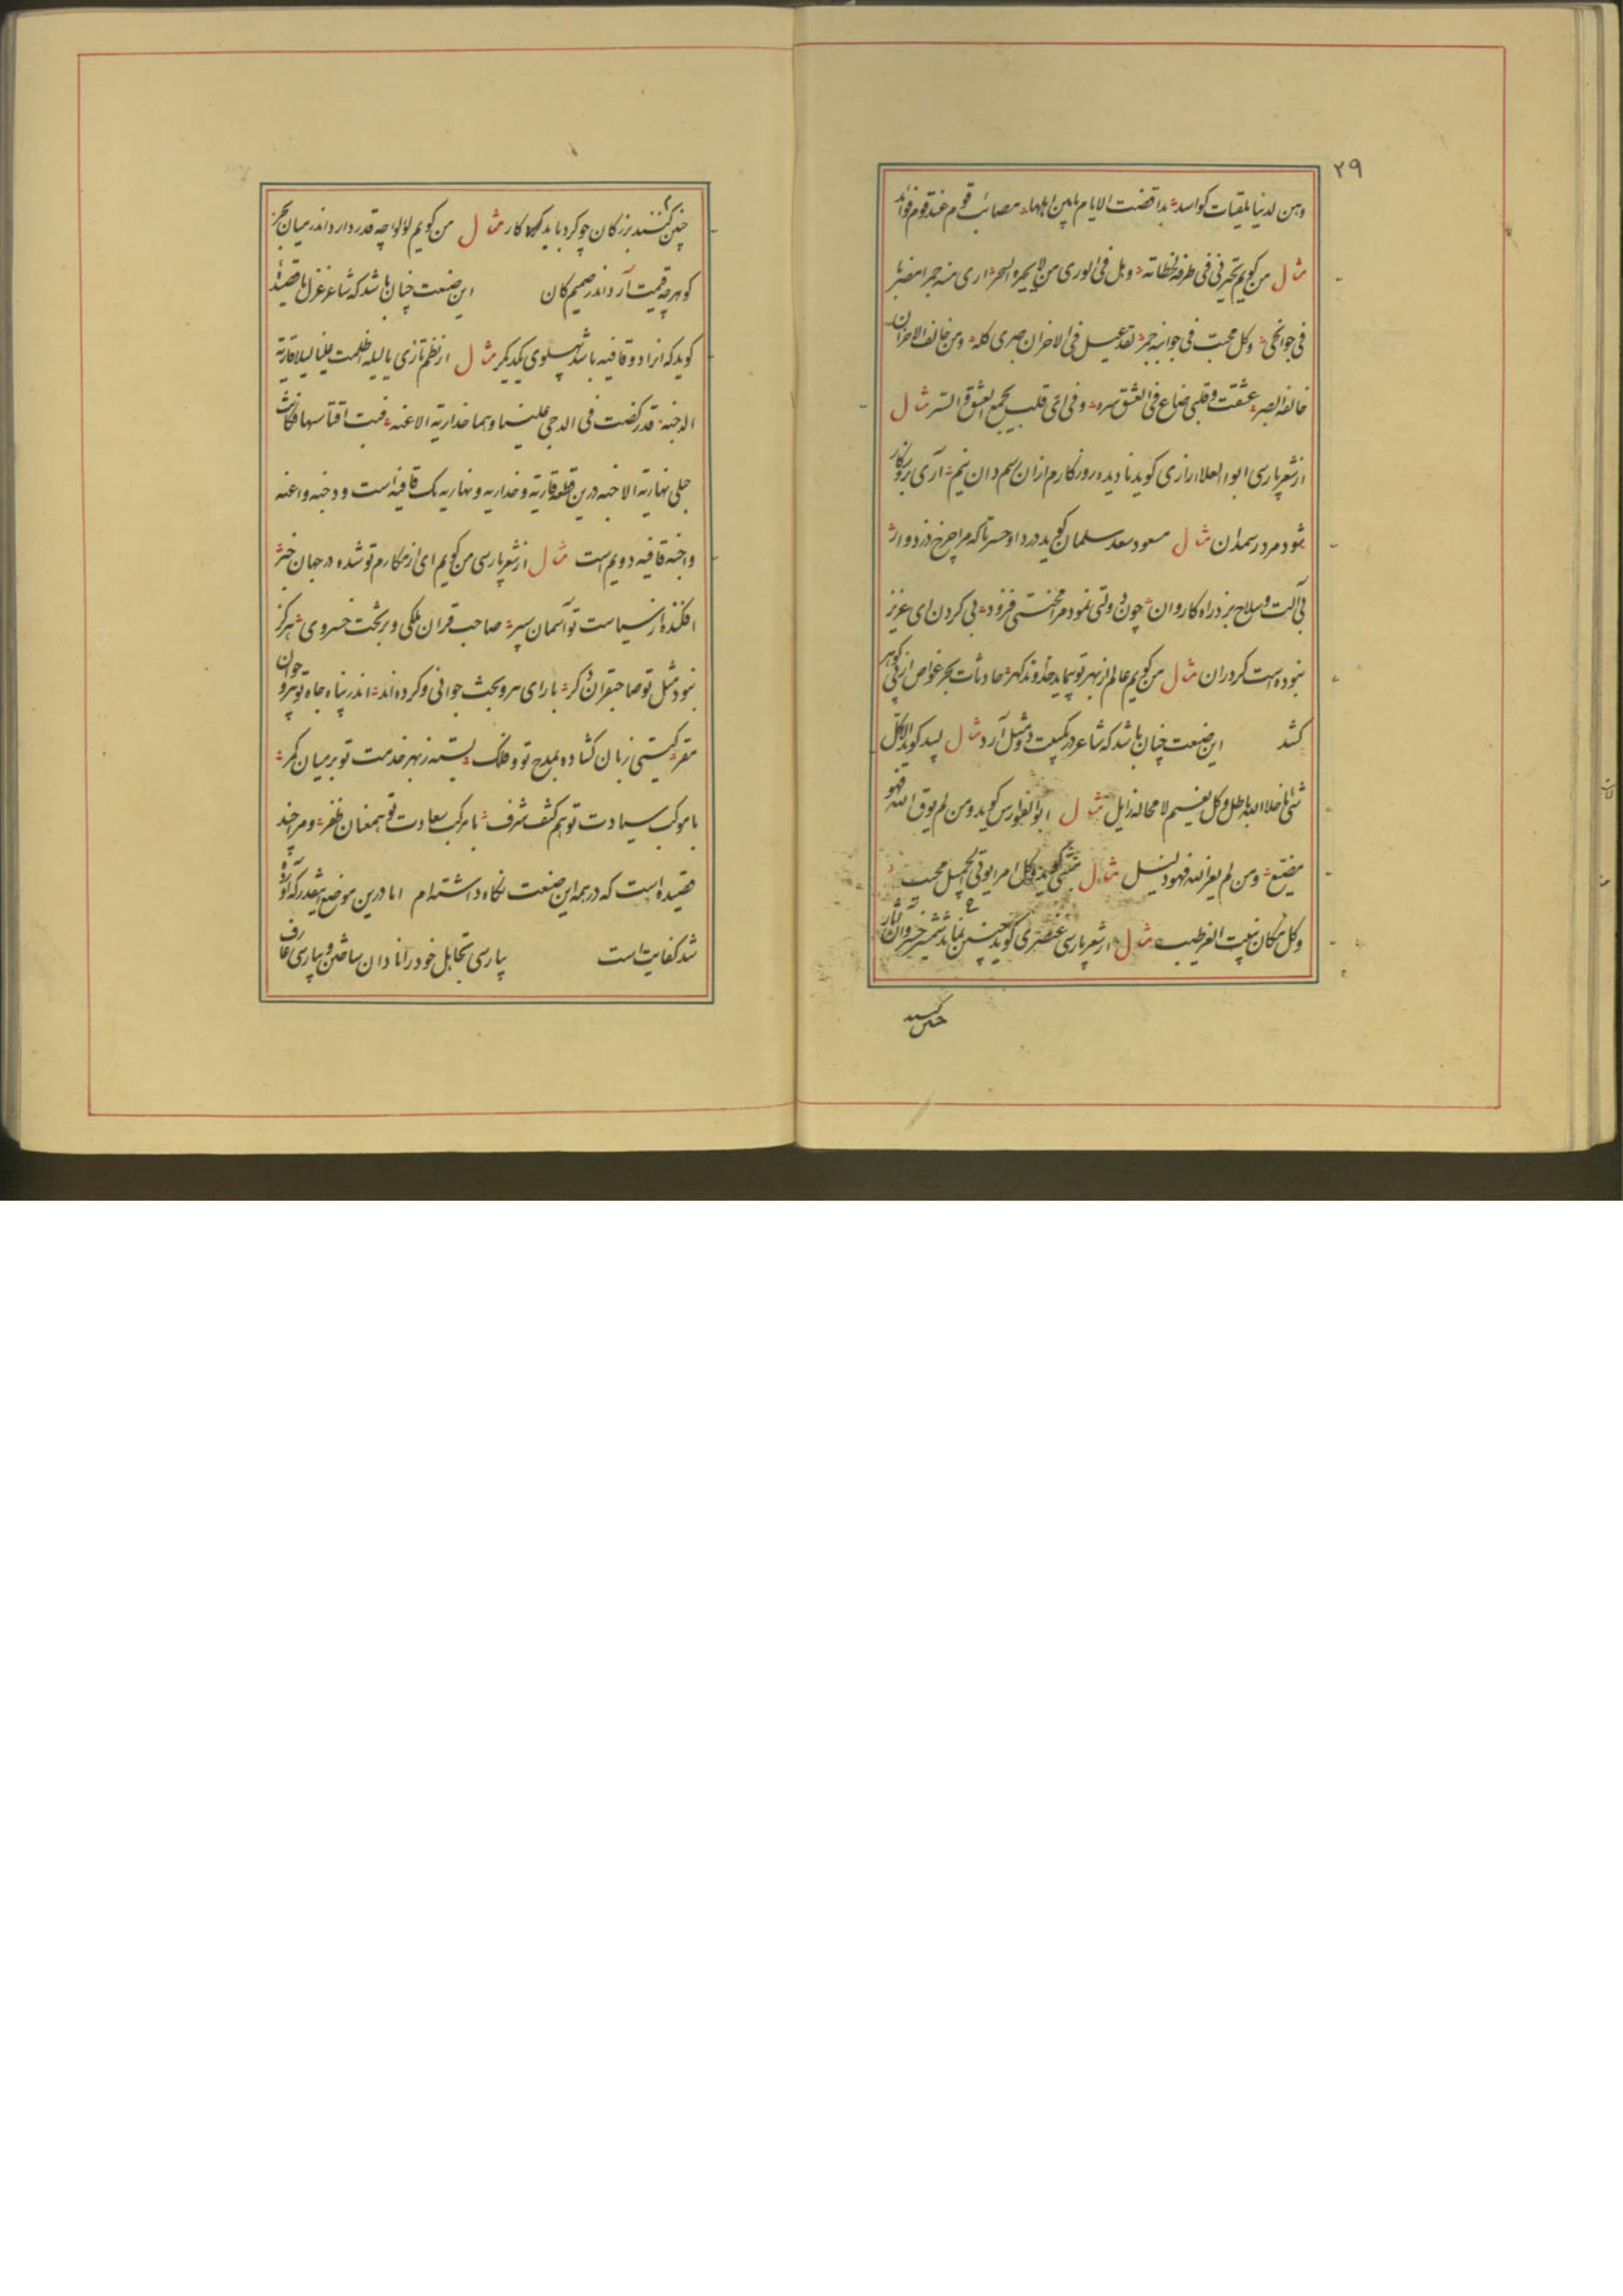 ۲۹
وهن لدنیا ملقیات کواسد بداقضت الایام مابین اهلها مصائب قوم عند قوم فوائد
مثال من کویم تحیرنی فی طرفه لحظاته وهل فی الوری من لا یحیره السحر اری منه جمرا مضرما
فی جوانحی وکل محب فی جوانبه جمر لقد عیل فی الاحزان صبری کله ومن خالف الاحزان
خالفه الصبر عشقت وقلبی ضاع فی العشق سره وفی ای قلب یجمع العشق والستر مثال
از شعر پارسی ابوالعلاء رازی کوید نادیده روزکارم ازان رسم دان نیم آری بروزکار
شود مرد رسمدان مثال مسعود سعد سلمان کوید دردا وحسرتا که مرا چرخ دزدوار
بی آلت وسلاح بزد راه کاروان چون دولتی نمود مرا محنتی فزود بی کردن ای عزیز
نبوده است کردران مثال من کویم عالم از بهر تو پیماید خداوند کهر حادثات بحر غواص از پی کوهر
کشد این صنعت چنان باشد که شاعر در یک بیت دو مثل آرد مثال لبید کوید الا کل
شئ ما خلا الله باطل وکل نعیم لا محاله زایل مثال ابوالفوارس کوید ومن لم یوق الله فهو
مضیع ومن لم یعز الله فهو ذلیل مثال متنبی کوید وکل امرء یولی الجمیل محبب
وکل مکان ینبت العز طیب مثال از شعر پارسی عنصری کوید چنین نماید شمشیر خسروان آثار
چنین کنند
چنین کنند بزرکان چو کرد باید کار مثال من کویم لؤلؤ چه قدر دارد اندر میان بحر
کوهر چه قیمت آرد اندر صمیم کان این صنعت چنان باشد که شاعر غزل یا قصیده
کوید که انرا دو قافیه باشد پهلوی یکدیکر مثال از نظم تازی یا لیله اظلمت علینا لیلا قاریة
الدجنه قد رکضت فی الدجی علینا دهما خداریة الاعنه فبت اقتاسها فکانت
حبلی نهاریة الاجنه درین قطعه قاریة وخداریه ونهاریه یک قافیه است ودجنه واعنه
واجنه قافیه دویم است مثال از شعر پارسی من کویم ای از مکارم تو شده در جهان خبر
افکنده از سیاست تو آسمان سپر صاحب قران ملکی وبر تخت خسروی هرکز
نبود مثل تو صاحبقران دکر بارای پیر وبخت جوانی وکرده اند اندر پناه جاه تو پیر وجوان
مقر کیتی زبان کشاده بمدح تو وفلک بسته ز بهر خدمت تو بر میان کمر
با موکب سیادت تو هم کتف شرف با مرکب سعادت تو همعنان ظفر ومر چند
قصیده است که در همه این صنعت نکاه داشته ام اما درین موضع اینقدر که آورده
شد کفایت است پارسی تجاهل خود را نادان ساختن و پارسی عارف